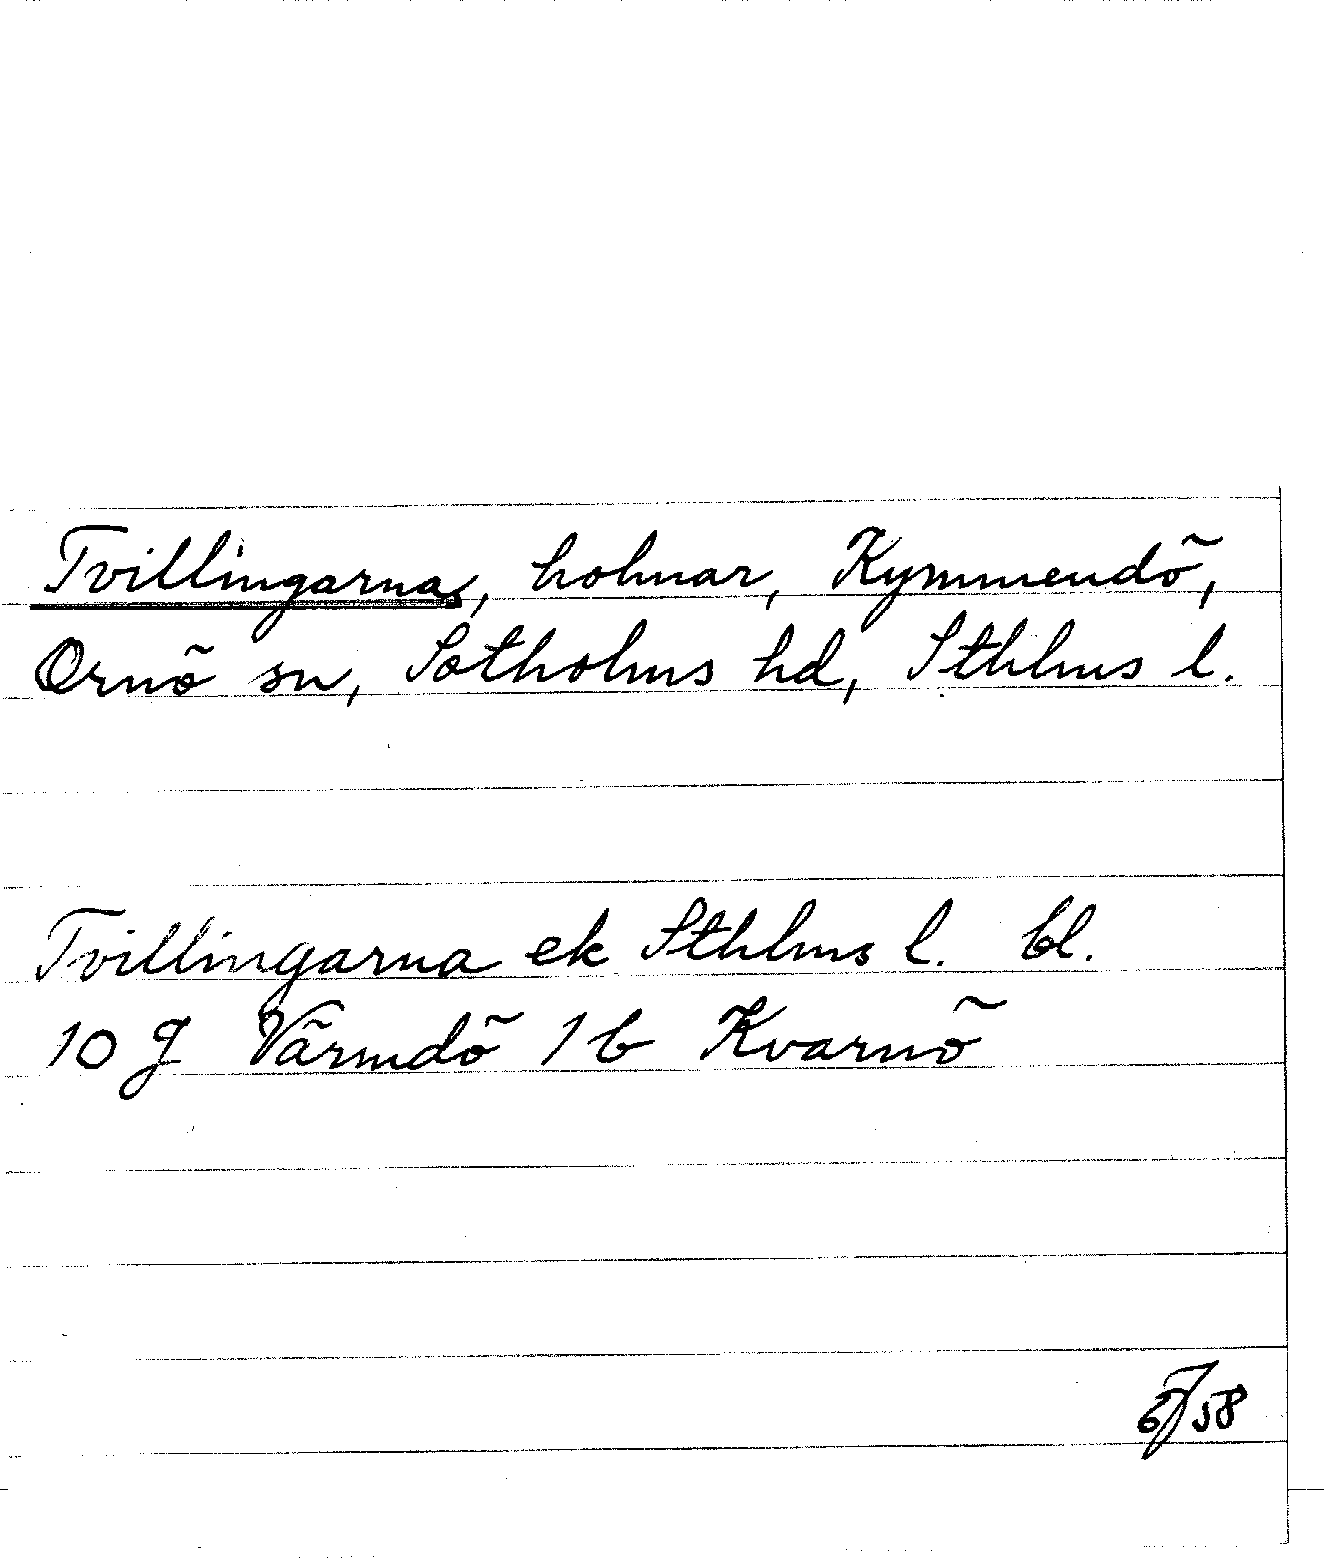 Tvillingarna, holmar, Kymmendö,
Ornö sn, Sotholms hd, Sthlms l.
Tvillingarna ek Sthlms l. bl.
10 J Värmdö 1 b Kvarnö
58